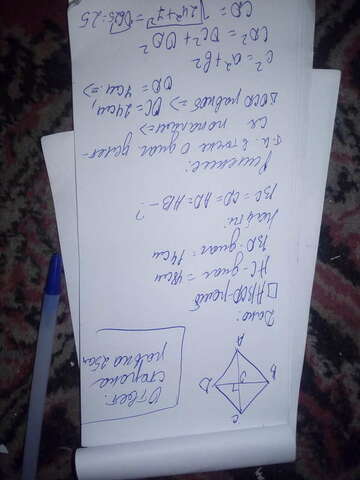 C
D
O
B
A
Дано:
ABCD-ромб
AC-диаг = 48см
BD-диаг = 14см
Найти
BC = CD = AD = AB - ?
Решение:
т.к. в точке O диаг делят-
ся пополам =>
△OCD равноб => OC = 24см,
OD = 7см =>
c² = a² + b²
CD² = OC² + OD²
CD = √24² + 7² = √625 = 25
Ответ:
сторона
равна 25см